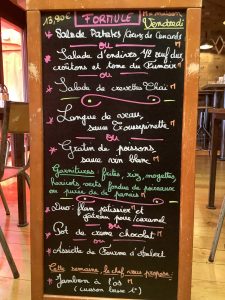 13,80€ FORMULE M = maison
Vendredi
* Salade Patates / Gésiers Canards
ou
* Salade d'endives, 1/2 œuf dur
croûtons et tome du Fumoir M
ou
* Salade de crevettes Thaï M
* Langue de veau, M
sauce
ou
* Gratin de poissons, M
sauce vin blanc
Garnitures : frites, riz, mogettes
haricots verts fondue de poireaux
ou purée de panais M
* Duo : flan pâtissier M et
gâteau poire/caramel
ou M
* Pot de crème chocolat M
ou
* Assiette de Fourme d'Ambert
Cette semaine, le chef vous propose :
* Jambon à l'os M
(cuisson basse t°)